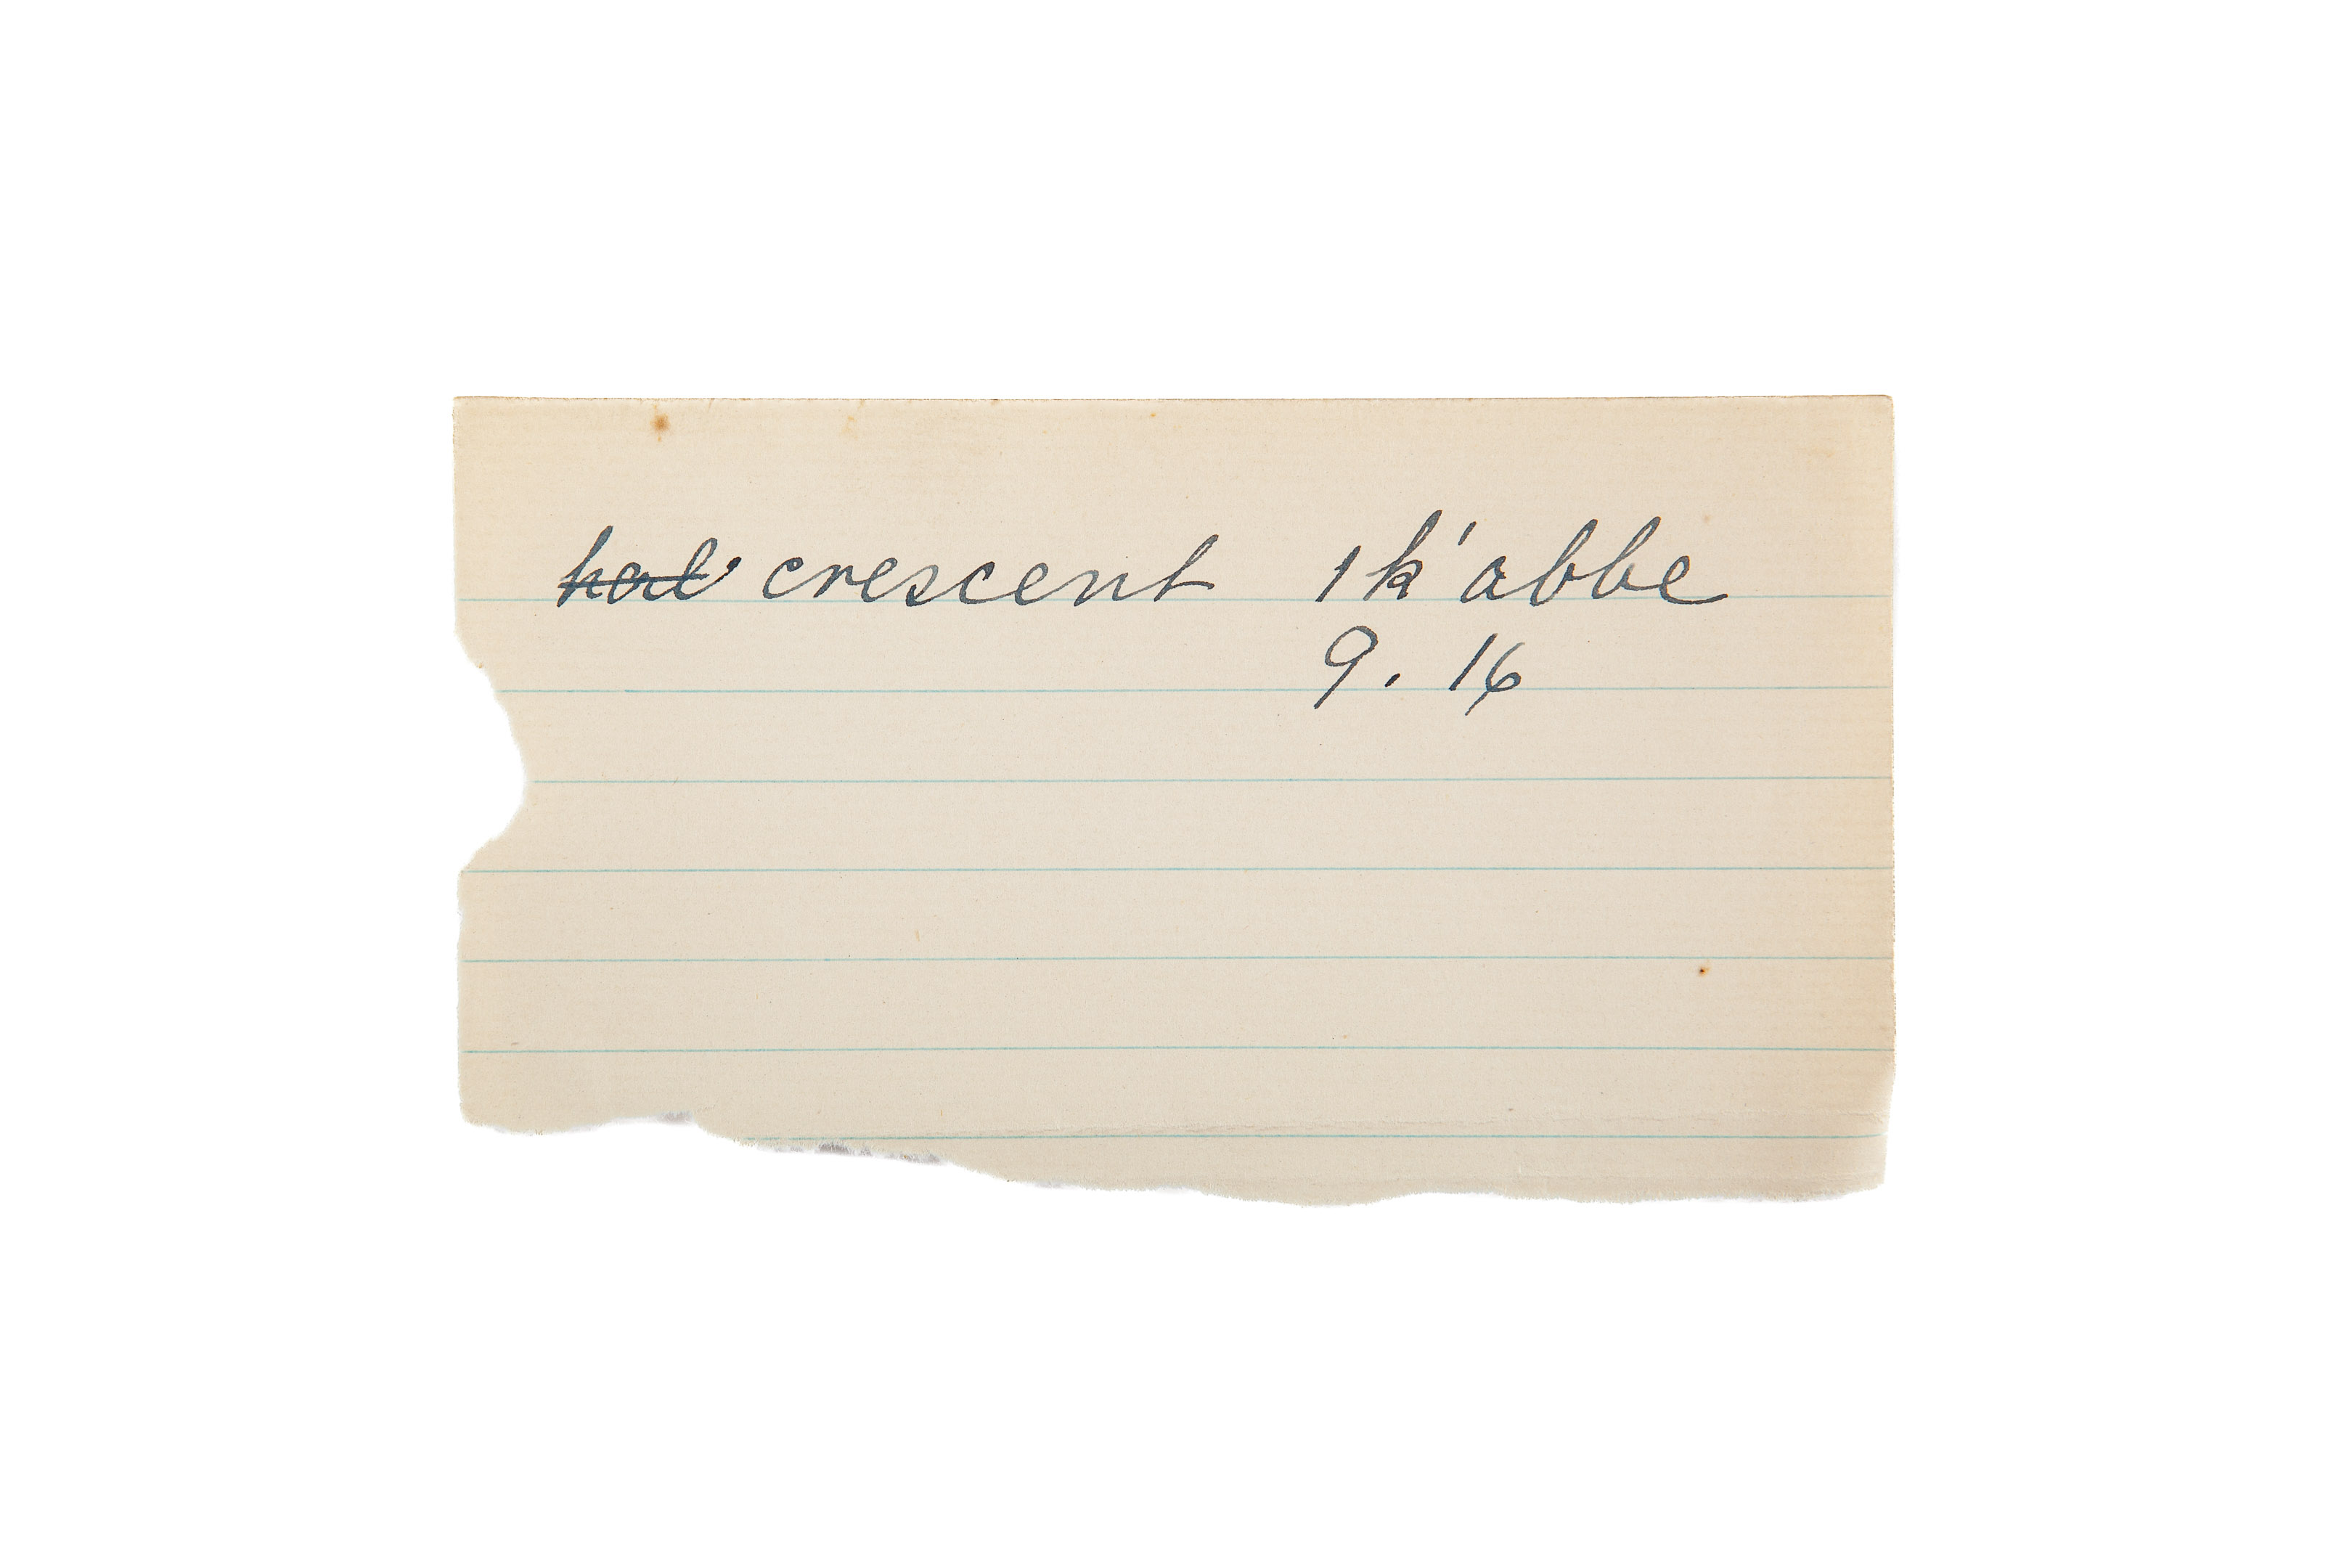 crescent 1k'abbe
9. 16